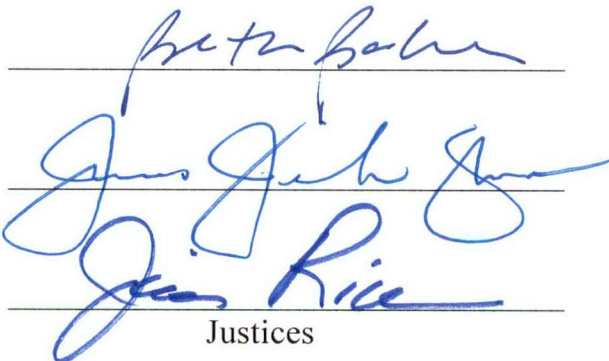 Beth Baker
James Jeremiah Shea
Jim Rice
Justices